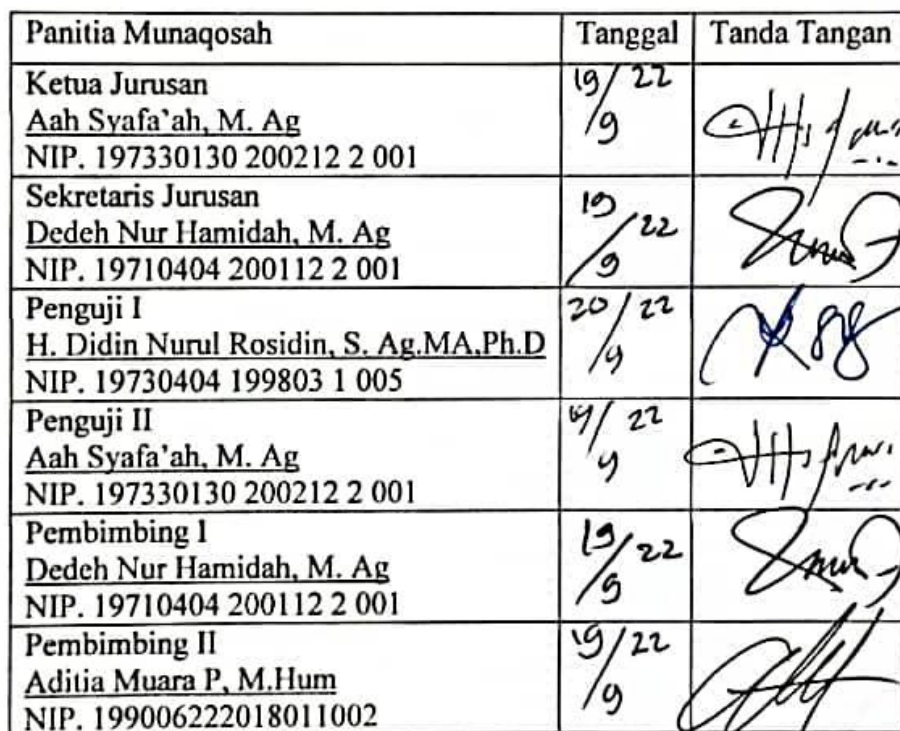 Panitia Munaqosah Tanggal Tanda Tangan
Ketua Jurusan 19/9 22
Aah Syafa'ah, M. Ag
NIP. 197330130 200212 2 001
Sekretaris Jurusan 19/9 22
Dedeh Nur Hamidah, M. Ag
NIP. 19710404 200112 2 001
Penguji I 20/9 22
H. Didin Nurul Rosidin, S. Ag.MA,Ph.D
NIP. 19730404 199803 1 005
Penguji II 22
Aah Syafa'ah, M. Ag
NIP. 197330130 200212 2 001
Pembimbing I 19/9 22
Dedeh Nur Hamidah, M. Ag
NIP. 19710404 200112 2 001
Pembimbing II 19/9 22
Aditia Muara P, M.Hum
NIP. 199006222018011002